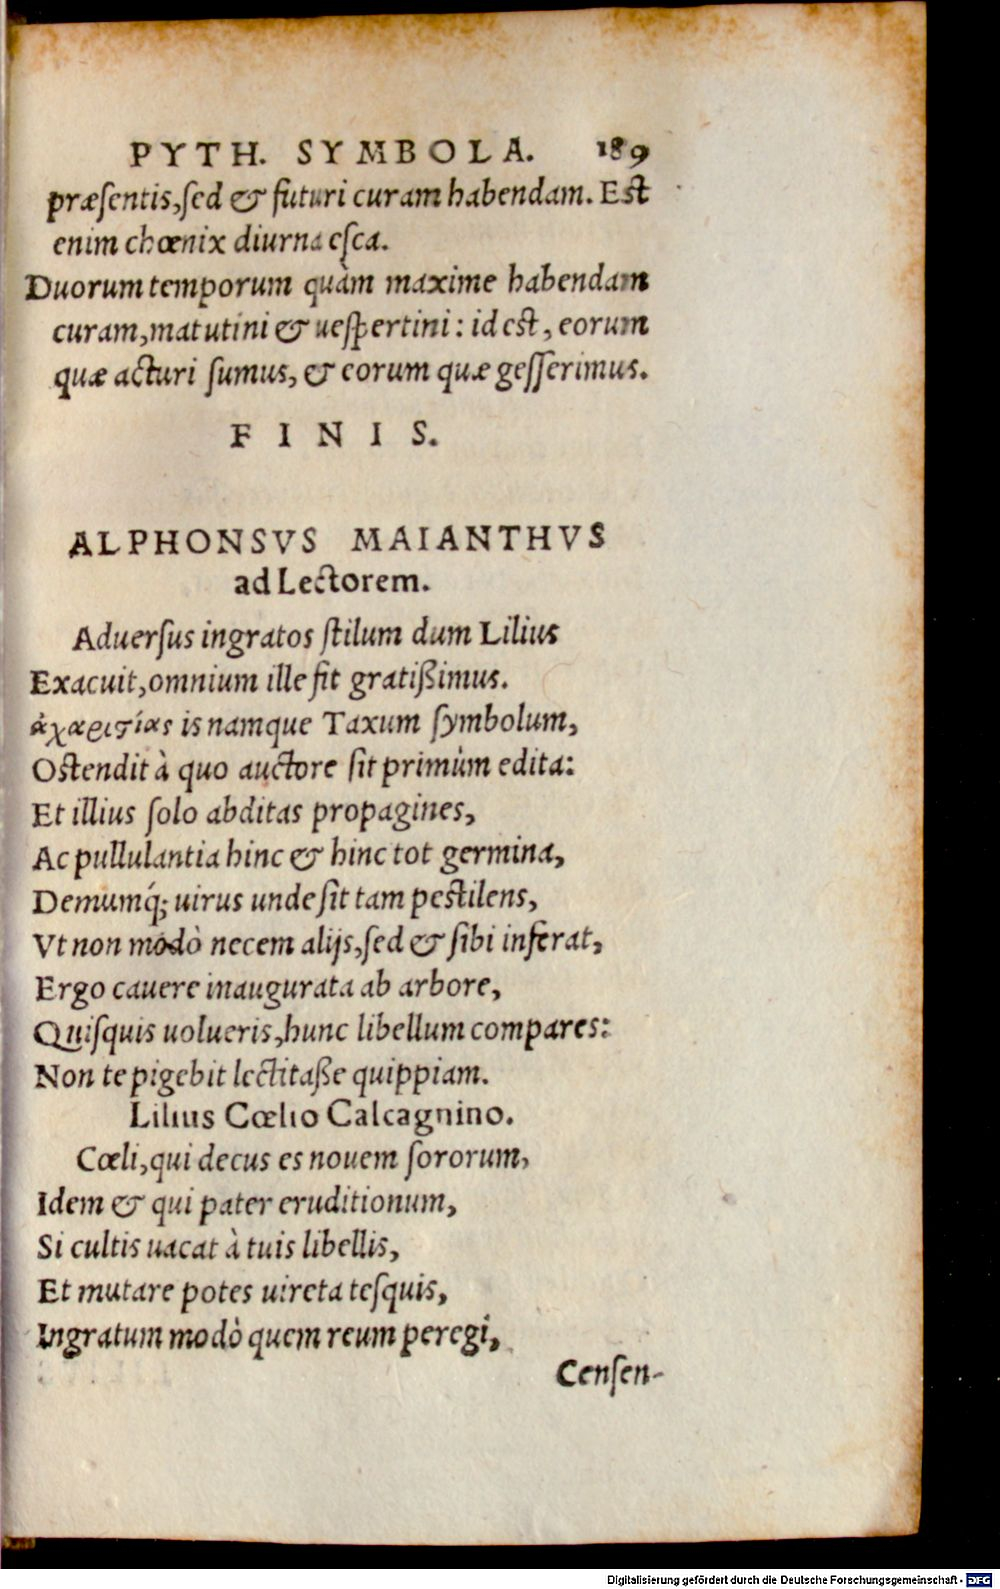 PYTH. SYMBOLA. 189
præsentis, sed & futuri curam habendam. Est
enim chœnix diurna esca.
Duorum temporum quàm maxime habendam
curam, matutini & uespertini: id est, eorum
quæ acturi sumus, & eorum quæ gesserimus.
FINIS.
ALPHONSVS MAIANTHVS
ad Lectorem.
Aduersus ingratos stilum dum Lilius
Exacuit, omnium ille fit gratißimus.
ἀχαριστίας is namque Taxum symbolum,
Ostendit à quo auctore sit primùm edita:
Et illius solo abditas propagines,
Ac pullulantia hinc & hinc tot germina,
Demumq́; uirus unde sit tam pestilens,
Vt non modò necem alijs, sed & sibi inferat,
Ergo cauere inaugurata ab arbore,
Quisquis uolueris, hunc libellum compares:
Non te pigebit lectitaße quippiam.
Lilius Cœlio Calcagnino.
Cœli, qui decus es nouem sororum,
Idem & qui pater eruditionum,
Si cultis uacat à tuis libellis,
Et mutare potes uireta tesquis,
Ingratum modò quem reum peregi,
Censen-
Digitalisierung gefördert durch die Deutsche Forschungsgemeinschaft - DFG